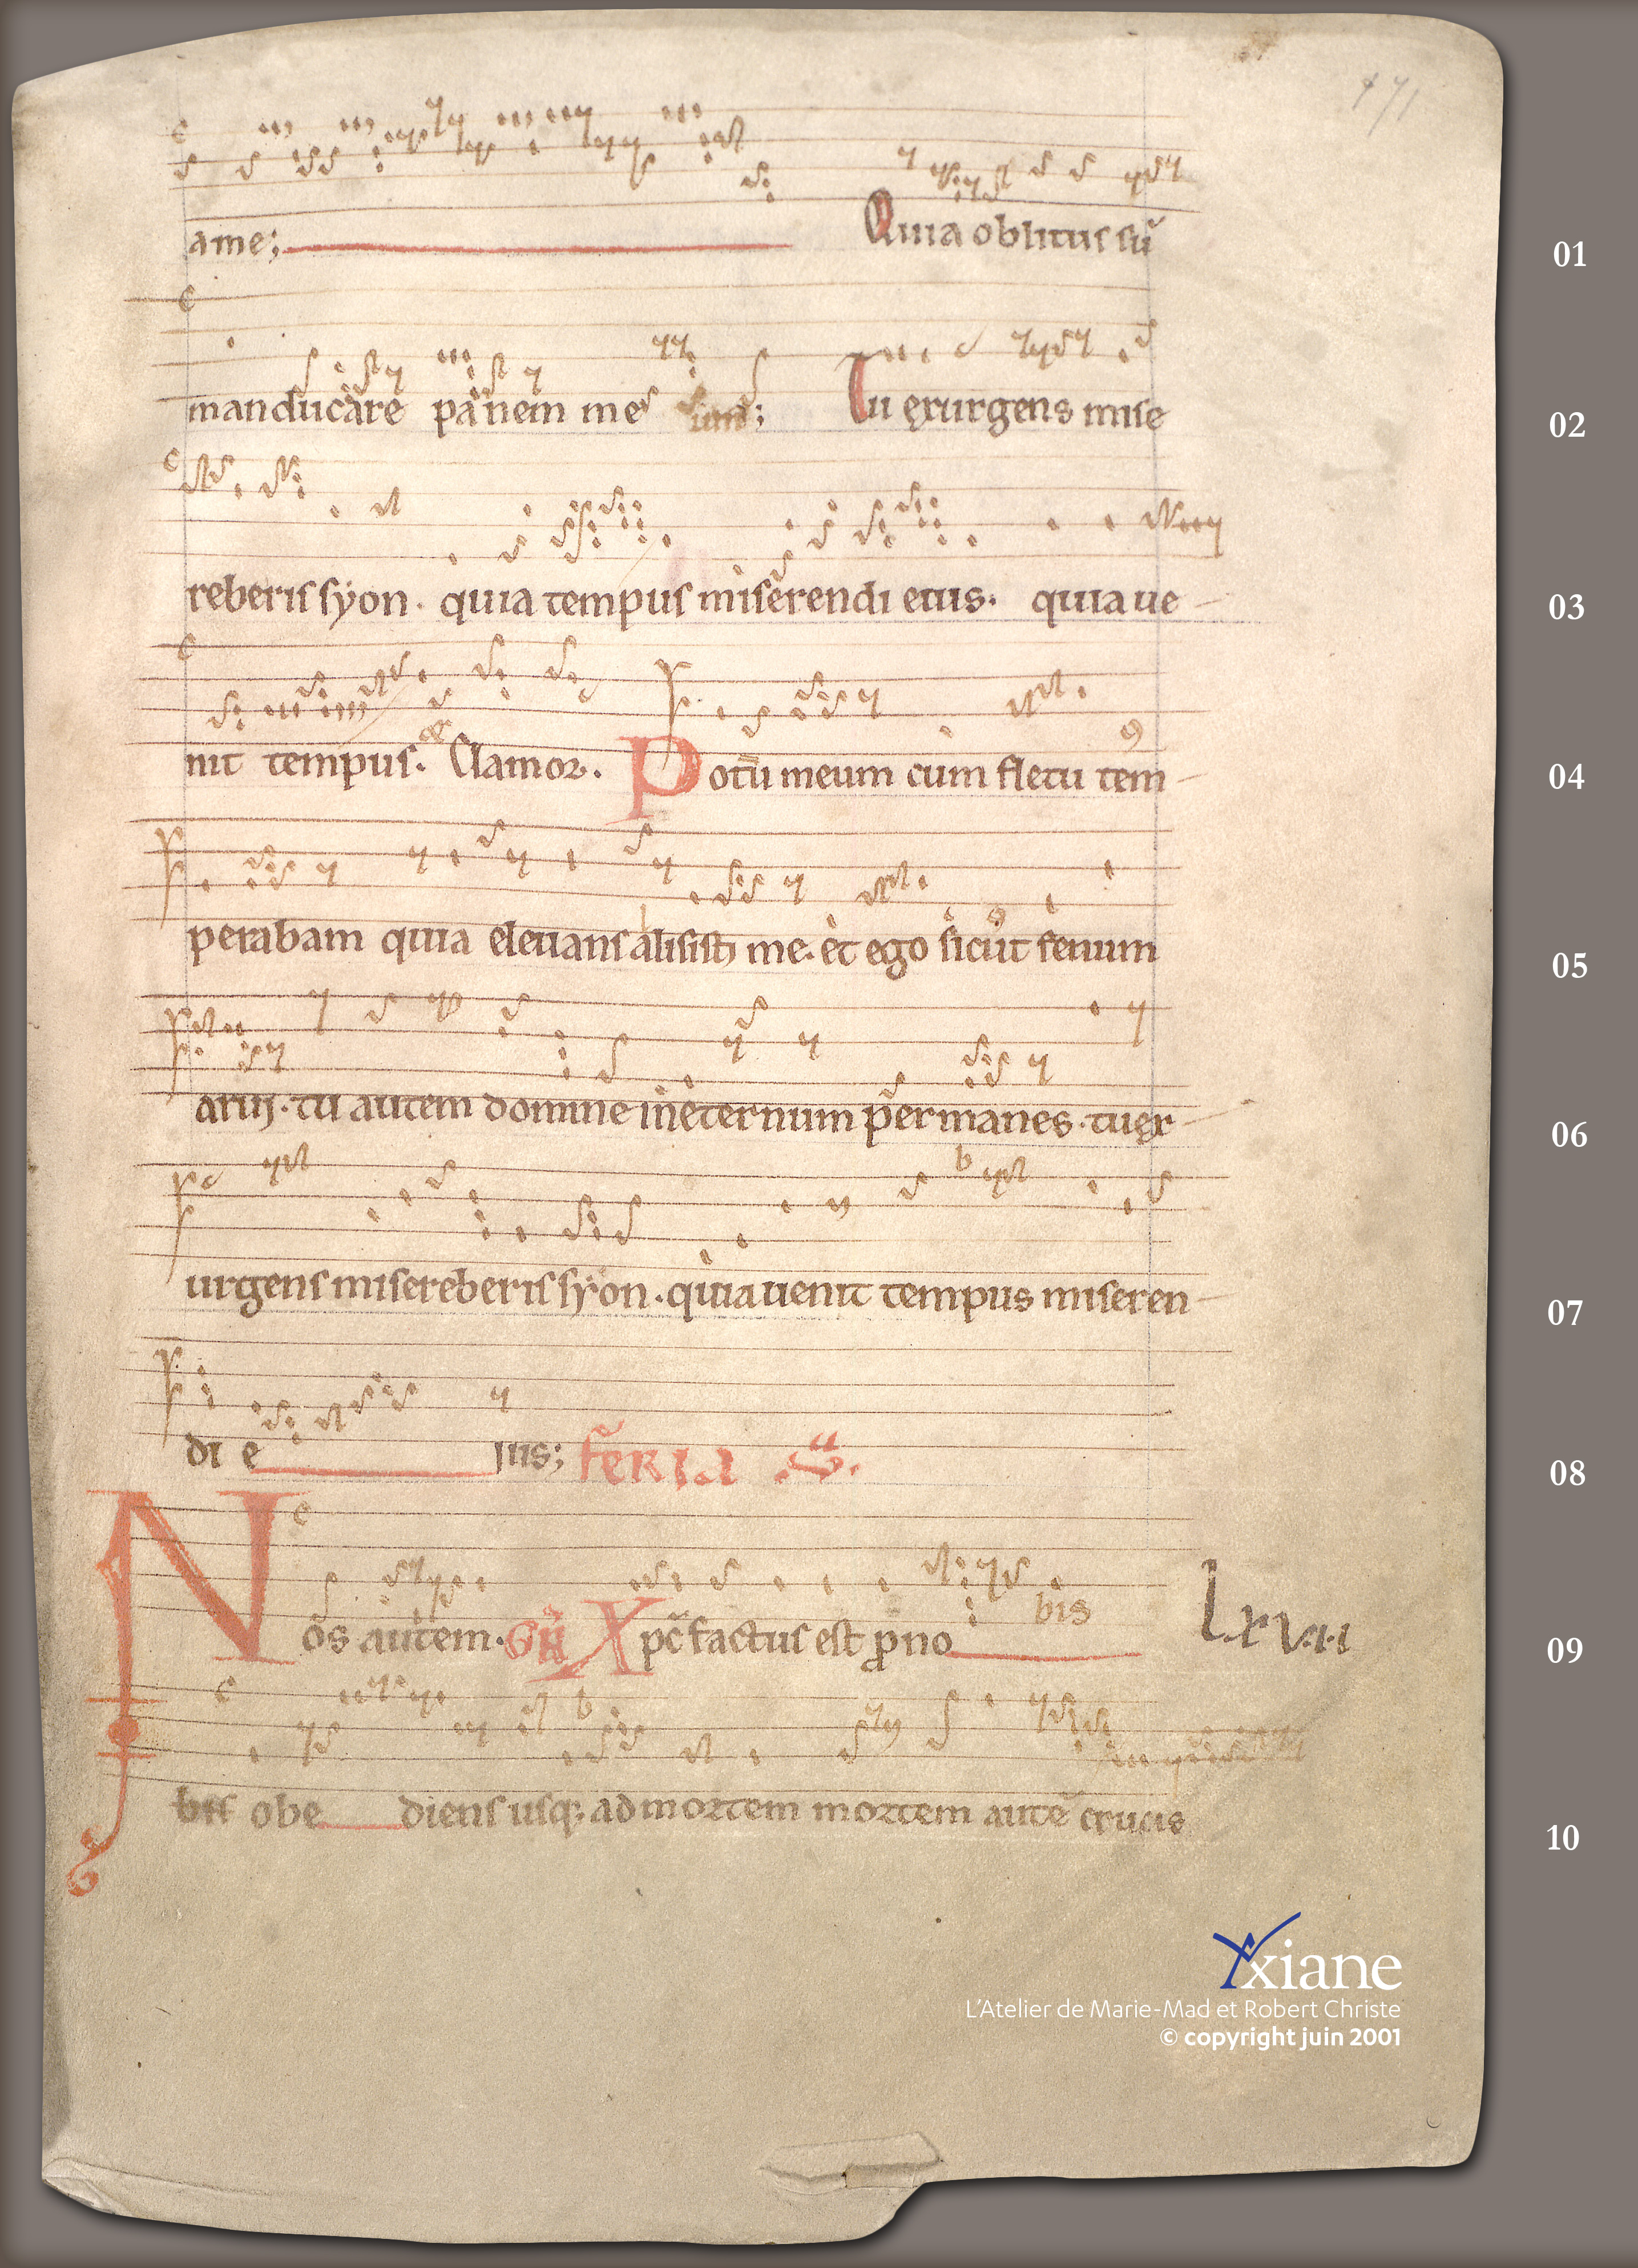 171
ame; Quia oblitus sū 01
manducare panem meum; Tu exurgens mise 02
reberis syon. quia tempus miserendi eius. quia ue 03
nit tempus. Clamor. Potū meum cum fletu tem 04
perabam quia eleuans alisisti me. et ego sicut fenum 05
arui. tu autem domine in eternum permanes. tu ex 06
urgens misereberis syon. quia uenit tempus miseren 07
di eius; feria 08
Nos autem. Xpc factus est pro no bis Lxvii 09
obediens usq; ad mortem mortem autē crucis 10
xiane
L'Atelier de Marie-Mad et Robert Christe
© copyright juin 2001